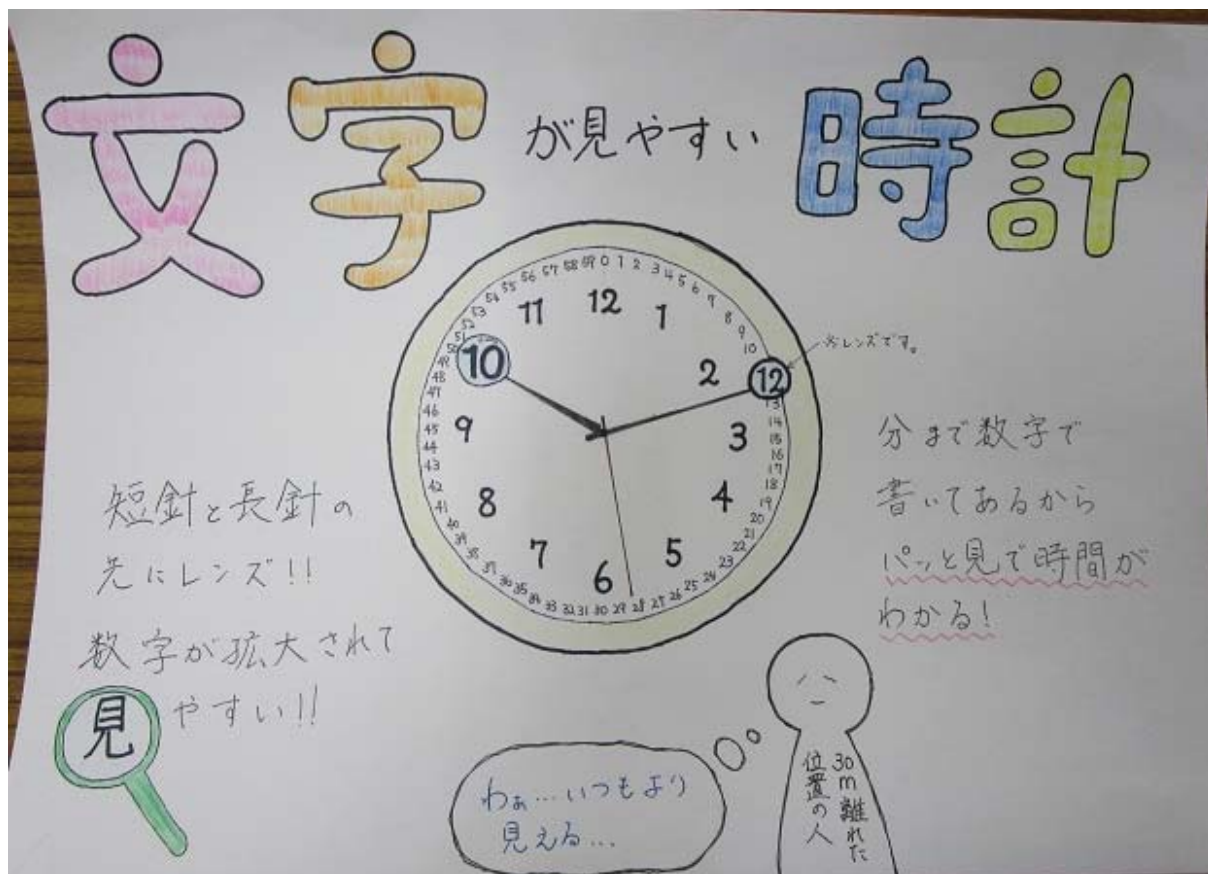 文字が見やすい時計
※レンズです。
0 1 2 3 4 5 6 7 8 9 10
12
13 14 15 16 17 18 19 20 21 22 23 24 25 26 27 28 29 30 31 32 33 34 35 36 37 38 39 40 41 42 43 44 45 46 47 48 49 50 51 52 53 54 55 56 57 58 59
12 1 2 3 4 5 6 7 8 9 10 11
短針と長針の
先にレンズ!!
数字が拡大されて
見やすい!!
分まで数字で
書いてあるから
パッと見で時間が
わかる!
わぁ…いつもより
見える…
30m離れた
位置の人